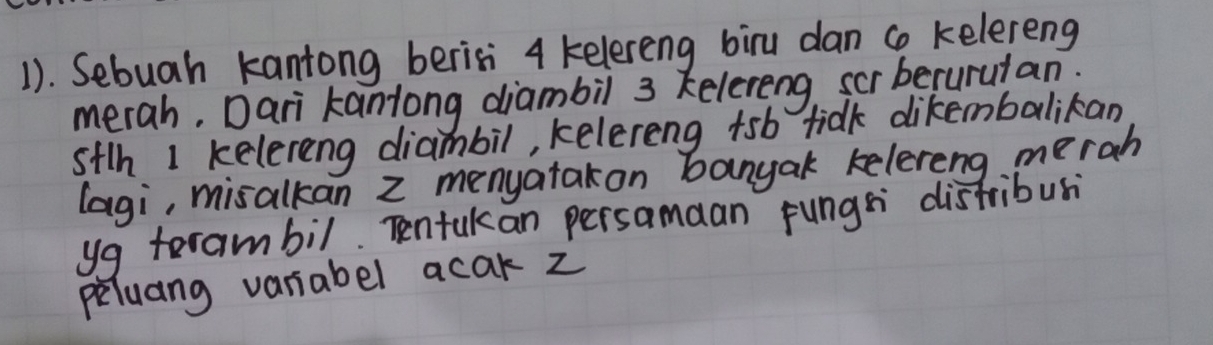 1). Sebuah kantong berisi 4 kelereng biru dan 6 kelereng
merah. Dari kantong diambil 3 kelereng scr berurutan.
stlh 1 kelereng diambil, kelereng tsb tidk dikembalikan
lagi, misalkan Z menyatakan banyak kelereng merah
yg terambil. Tentukan persamaan fungsi distribusi
peluang variabel acak Z